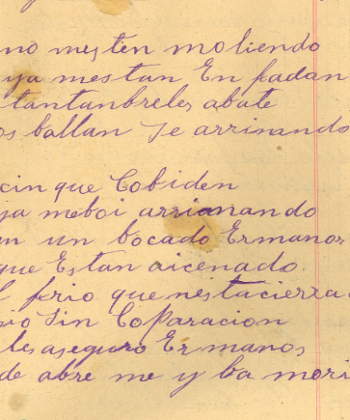 no mesten moliendo
ya mestan En fadan
tantanbreles abate
os ballan se arrimando
cin que Cobiden
ya meboi arrimando
en un bocado Ermanos
que Estan aicenado
l frio que nestacierra
sio Sin Coparacion
les aseguro Ermanos
de abre me y ba mori